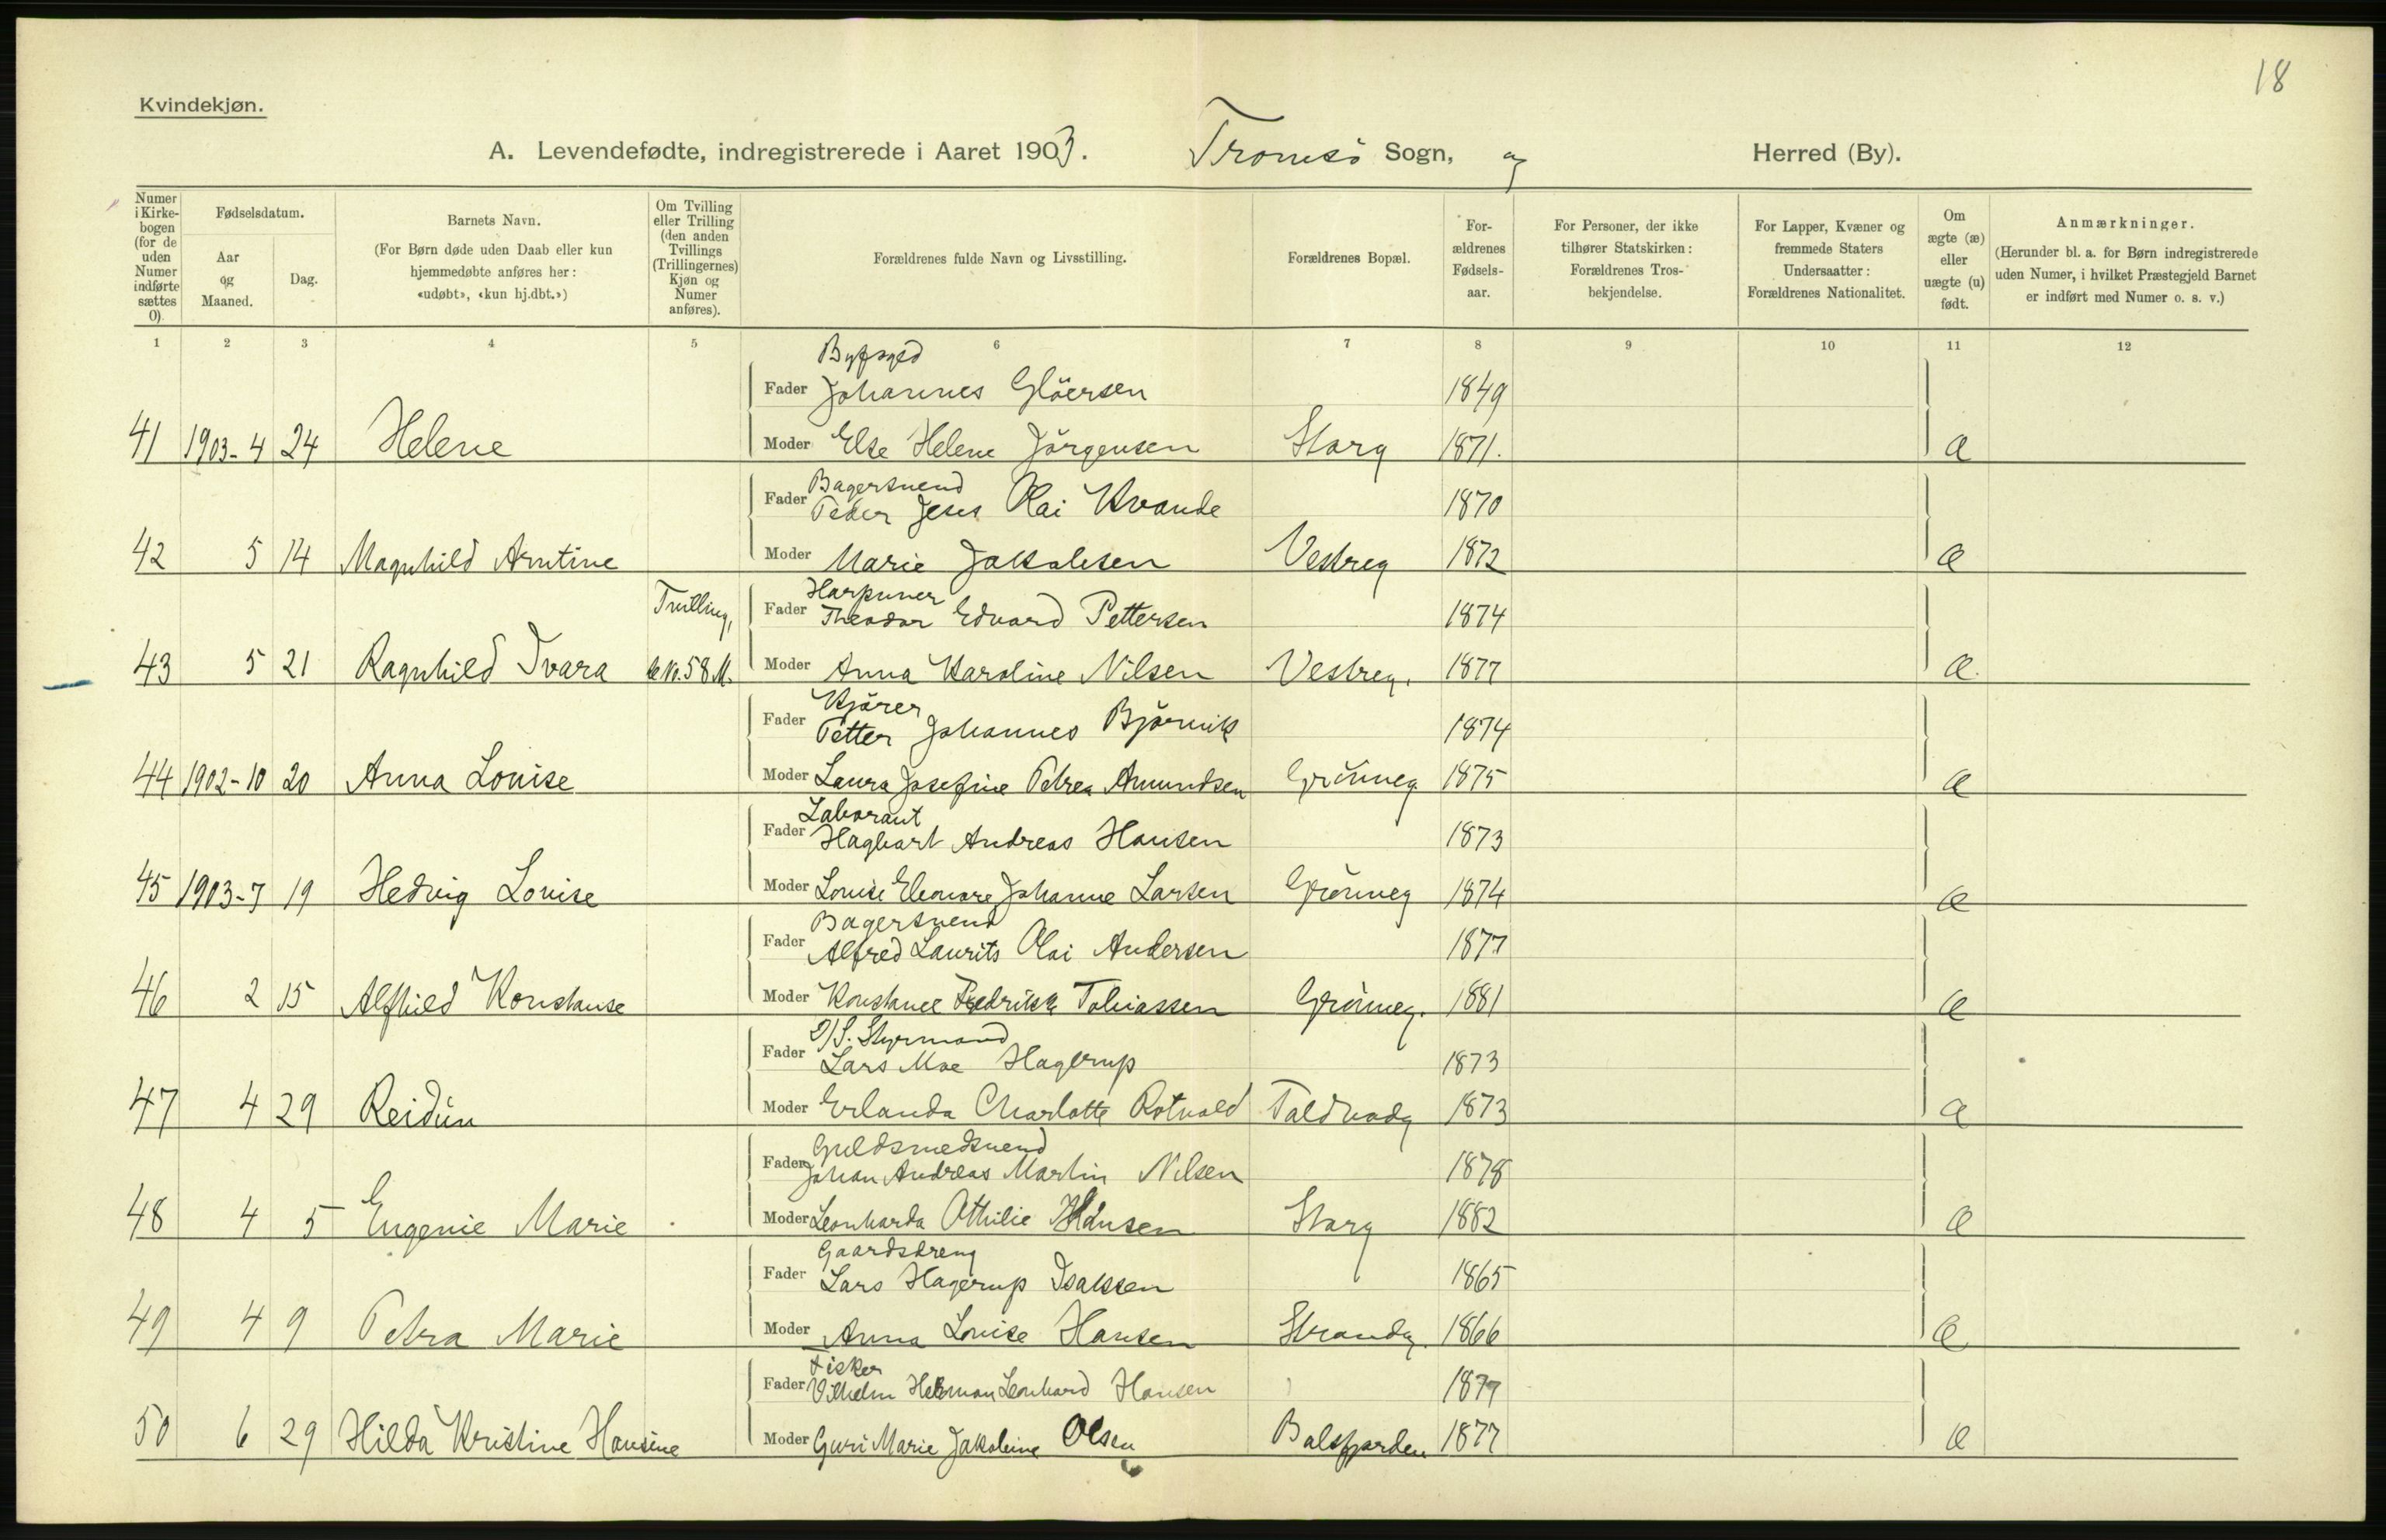 18
Kvindekjøn.
A. Levendefødte, indregistrerede i Aaret 1903. Tromsö Sogn, og Herred (By).
Numer i Kirkebogen (for de uden Numer indførte sættes 0).
Fødselsdatum.
Aar og Maaned.
Dag.
Barnets Navn.
(For Børn døde uden Daab eller kun hjemmedøbte anføres her: «udøbt», «kun hj.dbt.»)
Om Tvilling eller Trilling (den anden Tvillings (Trillingernes) Kjøn og Numer anføres).
Forældrenes fulde Navn og Livsstilling.
Forældrenes Bopæl.
Forældrenes Fødselsaar.
For Personer, der ikke tilhører Statskirken: Forældrenes Trosbekjendelse.
For Lapper, Kvæner og fremmede Staters Undersaatter: Forældrenes Nationalitet.
Om ægte (æ) eller uægte (u) født.
Anmærkninger.
(Herunder bl. a. for Børn indregistrerede uden Numer, i hvilket Præstegjeld Barnet er indført med Numer o. s. v.)
1 2 3 4 5 6 7 8 9 10 11 12
Byfoged
Fader Johannes Glöersen 1849
41 1903-4 24 Helene Moder Else Helene Jörgensen Storg 1871. æ
Bagersvend
Fader Peder Jens Olai Kvande 1870
42 5 14 Magnhild Arntine Moder Marie Jakobsen Vestreg 1872 æ
Harpuner
Tvilling, Fader Theodor Edvard Pettersen 1874
43 5 21 Ragnhild Ivara se No. 58 M. Moder Anna Karoline Nilsen Vestreg. 1877 æ
Kjörer
Fader Petter Johannes Björnvik 1874
44 1902-10 20 Anna Louise Moder Laura Josefine Petrea Amundsen Grönneg. 1875 æ
Laborant
Fader Hagbart Andreas Hansen 1873
45 1903-7 19 Hedvig Louise Moder Louise Eleonore Johanne Larsen Grönneg 1874 æ
Bagersvend
Fader Alfred Laurits Olai Andersen 1877
46 2 15 Alfhild Konstanse Moder Konstanse Fredrikke Tobiassen Grönneg. 1881 æ
D/S. Styrmand
Fader Lars Moe Hagerup 1873
47 4 29 Reidun Moder Erlanda Charlotte Rotvold Toldbodg 1873 æ
Guldsmedsvend
Fader Johan Andreas Martin Nilsen 1878
48 4 5 Eugenie Marie Moder Leonharda Othilie Hansen Storg 1882 æ
Gaardsdreng
Fader Lars Hagerup Isaksen 1865
49 4 9 Petra Marie Moder Anna Louise Hansen Strandg. 1866 æ
Fisker
Fader Vilhelm Herman Leonhard Hansen 1877
50 6 29 Hilda Kristine Hansine Moder Guri Marie Jakobine Olsen Balsfjorden 1877 æ